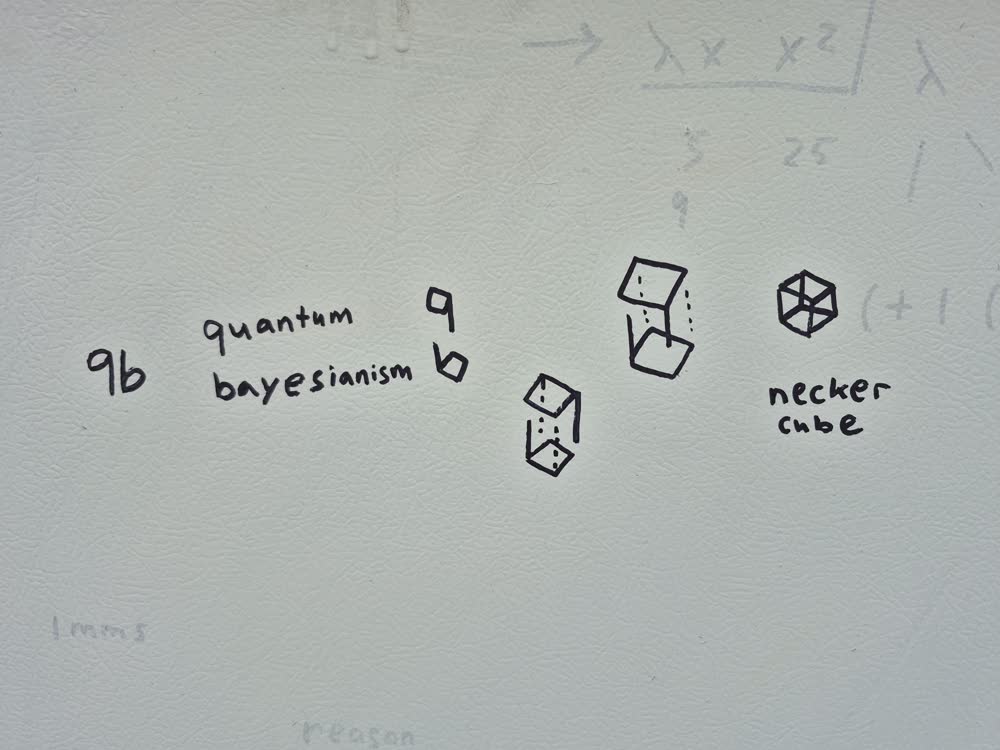 → λx x²
λ
5 25
9
(+ 1 (
qb
quantum
bayesianism
q
b
necker
cube
1mms
reason